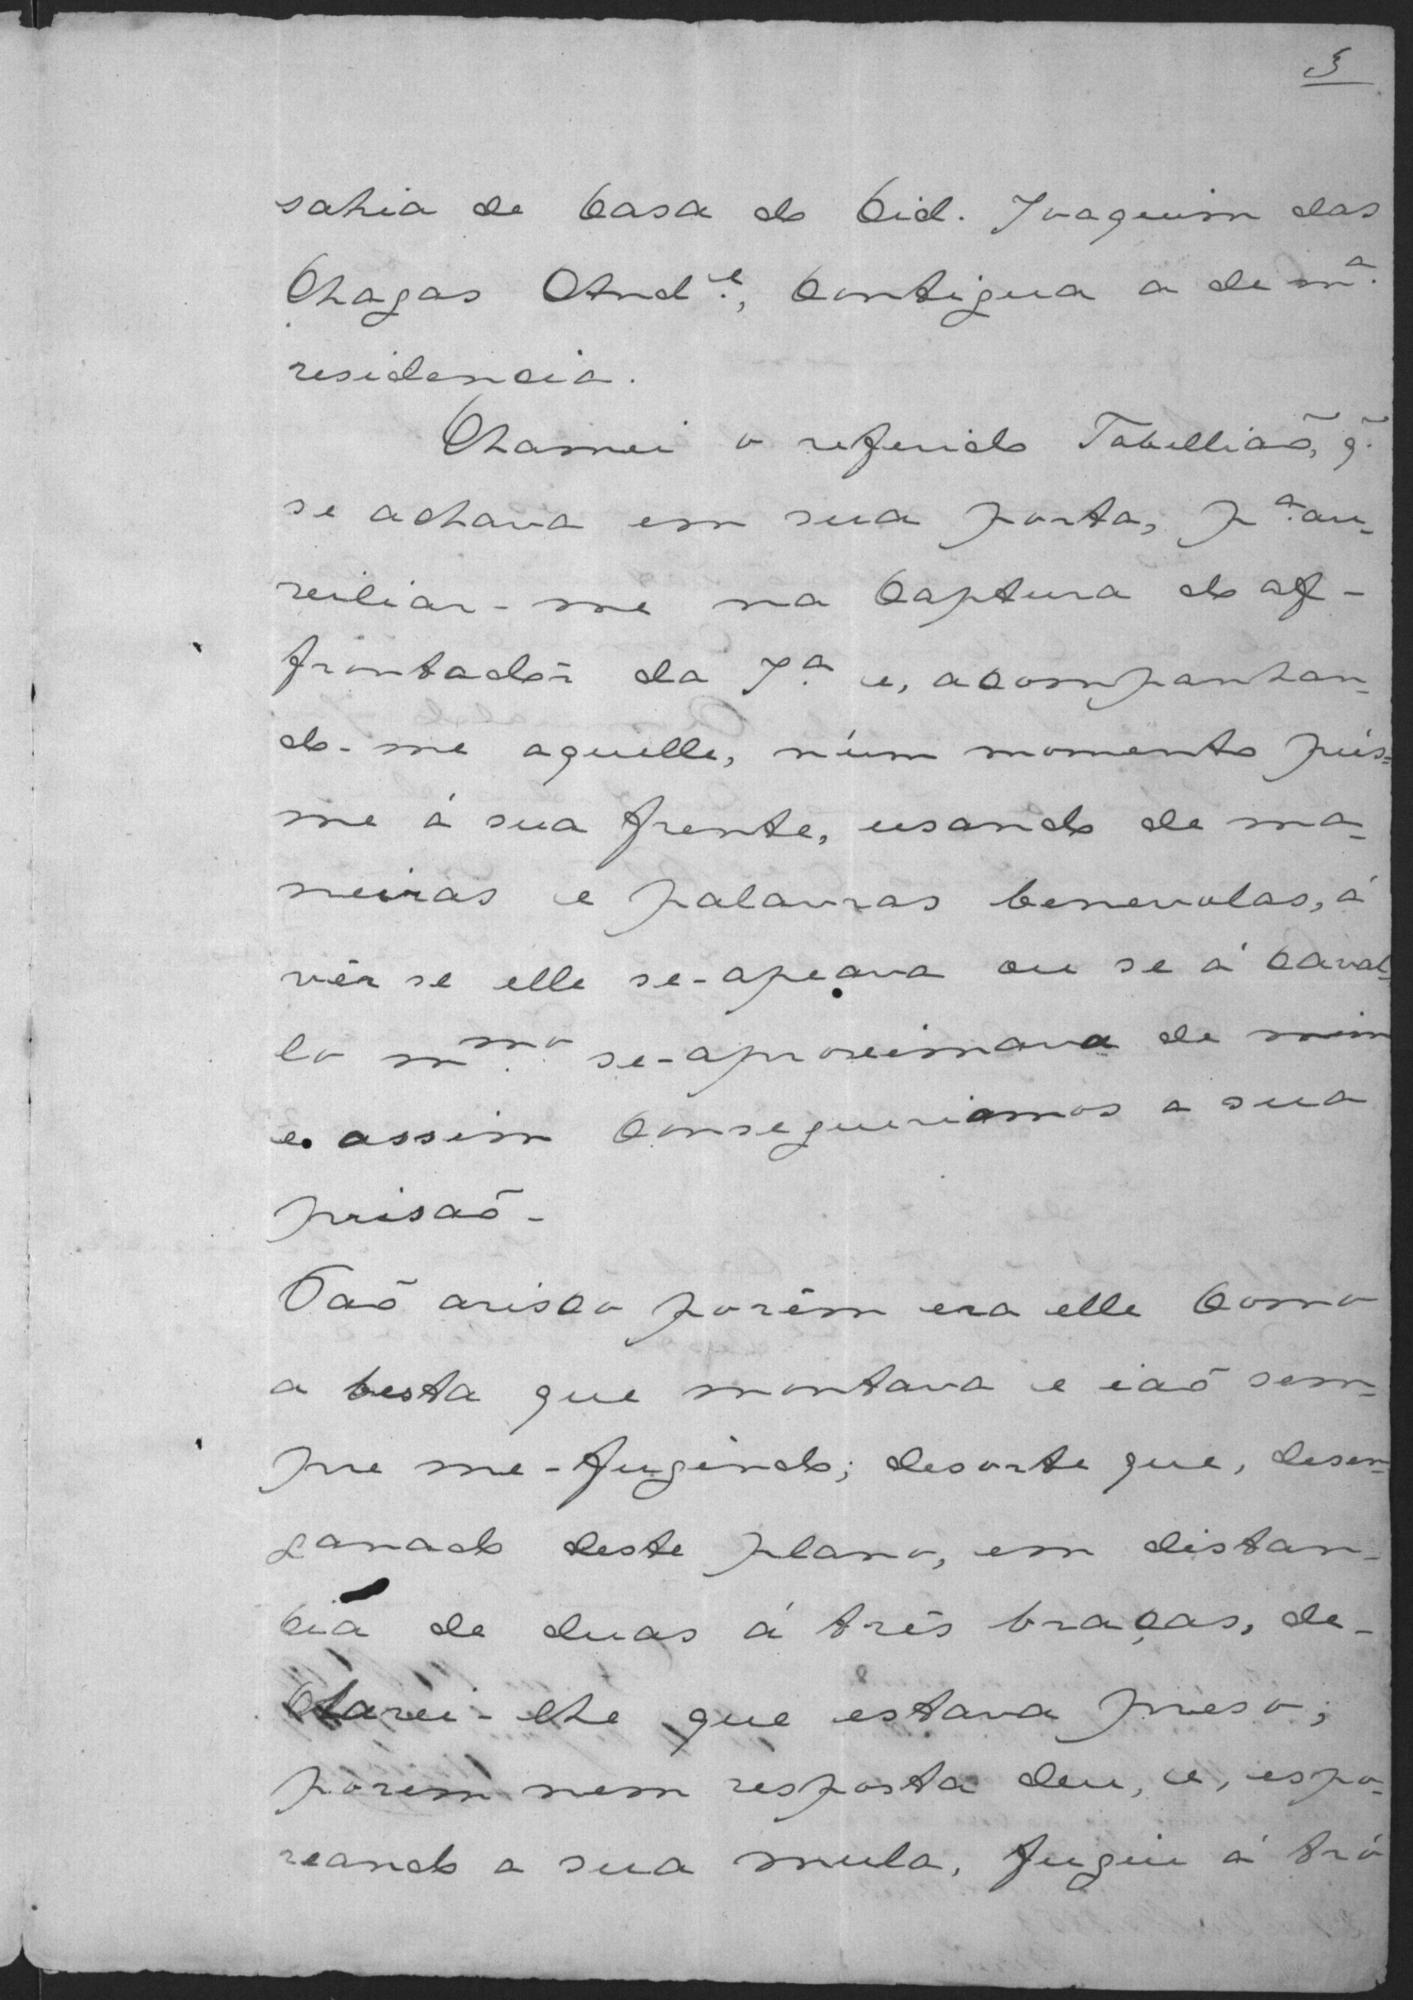 3
sahia de casa do Cid. Joaquim das
Chagas And.e, contigua a de m.a
residencia.
Chamei o referido Tabellião, q̃.
se achava em sua porta, p.a au-
xiliar-me na captura do af-
frontadôr da J.a e, acompanhan-
do-me aquelle, n'um momento puis-
me á sua frente, usando de ma-
neiras e palavras benevolas, á
vêr se elle se-apeava ou se á caval-
lo m.mo se-aproximava de mim
e assim conseguiriamos a sua
prisaõ-
Taõ arisco porêm era elle como
a besta que montava e iaõ sem-
pre me-fugindo; desorte que, desen-
ganado deste plano, em distan-
cia de duas á três braças, de-
clarei-lhe que estava prêso;
porem nem resposta deu, e, espo-
reando a sua mula, fugiu á tró